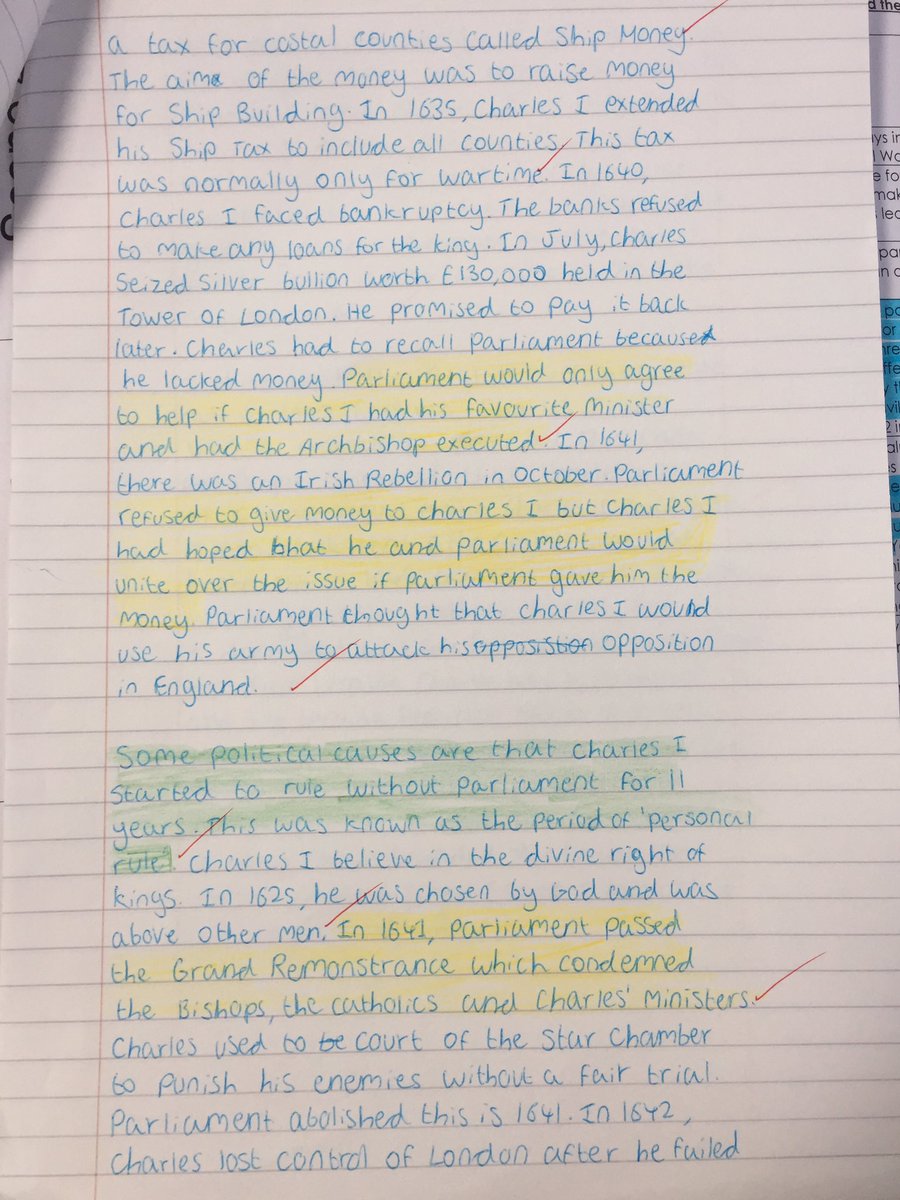 a tax for costal counties called Ship Money.
The aim of the money was to raise money
for Ship Building. In 1635, Charles I extended
his Ship Tax to include all counties. This tax
was normally only for wartime. In 1640,
Charles I faced bankruptcy. The banks refused
to make any loans for the king. In July, Charles
Seized Silver bullion worth £130,000 held in the
Tower of London. He promised to pay it back
later. Charles had to recall Parliament because
he lacked money. Parliament would only agree
to help if Charles I had his favourite Minister
and had the Archbishop executed. In 1641,
there was an Irish Rebellion in October. Parliament
refused to give money to Charles I but Charles I
had hoped that he and Parliament would
unite over the issue if Parliament gave him the
money. Parliament thought that Charles I would
use his army to attack his opposistion opposition
in England.
Some political causes are that Charles I
started to rule without Parliament for 11
years. This was known as the period of 'personal
rule'. Charles I believe in the divine right of
kings. In 1625, he was chosen by God and was
above other men. In 1641, Parliament passed
the Grand Remonstrance which condemned
the Bishops, the catholics and Charles' Ministers.
Charles used to be court of the Star Chamber
to punish his enemies without a fair trial.
Parliament abolished this is 1641. In 1642,
Charles lost control of London after he failed